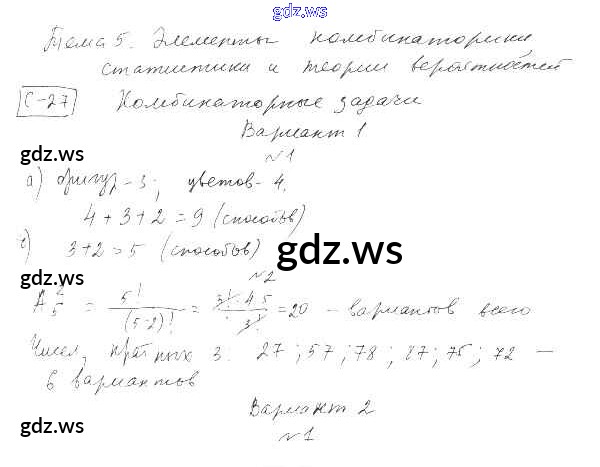 gdz.ws
Тема 5. Элементы комбинаторики
статистики и теории вероятностей
С-27 Комбинаторные задачи
Вариант 1
gdz.ws
№1
а) фигур - 3; цветов - 4.
4 + 3 + 2 = 9 (способов)
gdz.ws
3 + 2 = 5 (способов)
gdz.ws
gdz.ws
№2
A 2 5 = 5! / (5-2)! = 3! · 4 · 5 / 3! = 20 - вариантов всего
Чисел, кратных 3: 27; 57; 78; 87; 75; 72 —
gdz.ws
6 вариантов
Вариант 2
gdz.ws
№1